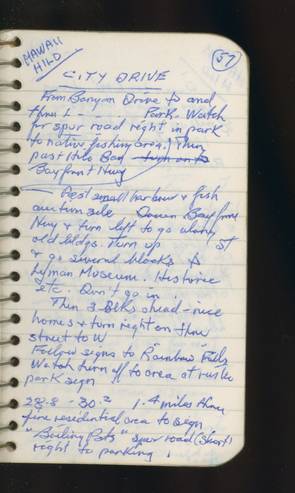 HAWAII
HILO
57
CITY DRIVE
From Banyan Drive to and
thru L - - - Park. Watch
for spur road right in park
to native fishing area. Then
past Hilo Bay
Bayfront Hwy
Past small harbour & fish
auction site Down Bayfront
Hwy & turn left to go along
old bldgs. Turn up St
& go several blocks to
Lyman Museum. Historic
site. Don't go in.
Then 3 Blks ahead - nice
homes & turn right on thru
street to W
Follow signs to Rainbow Falls
Watch turn off to area at rustic
park sign
28.8 - 30.2 1.4 miles thru
fine residential area to sign
"Boiling Pots" spur road (short)
right to parking.